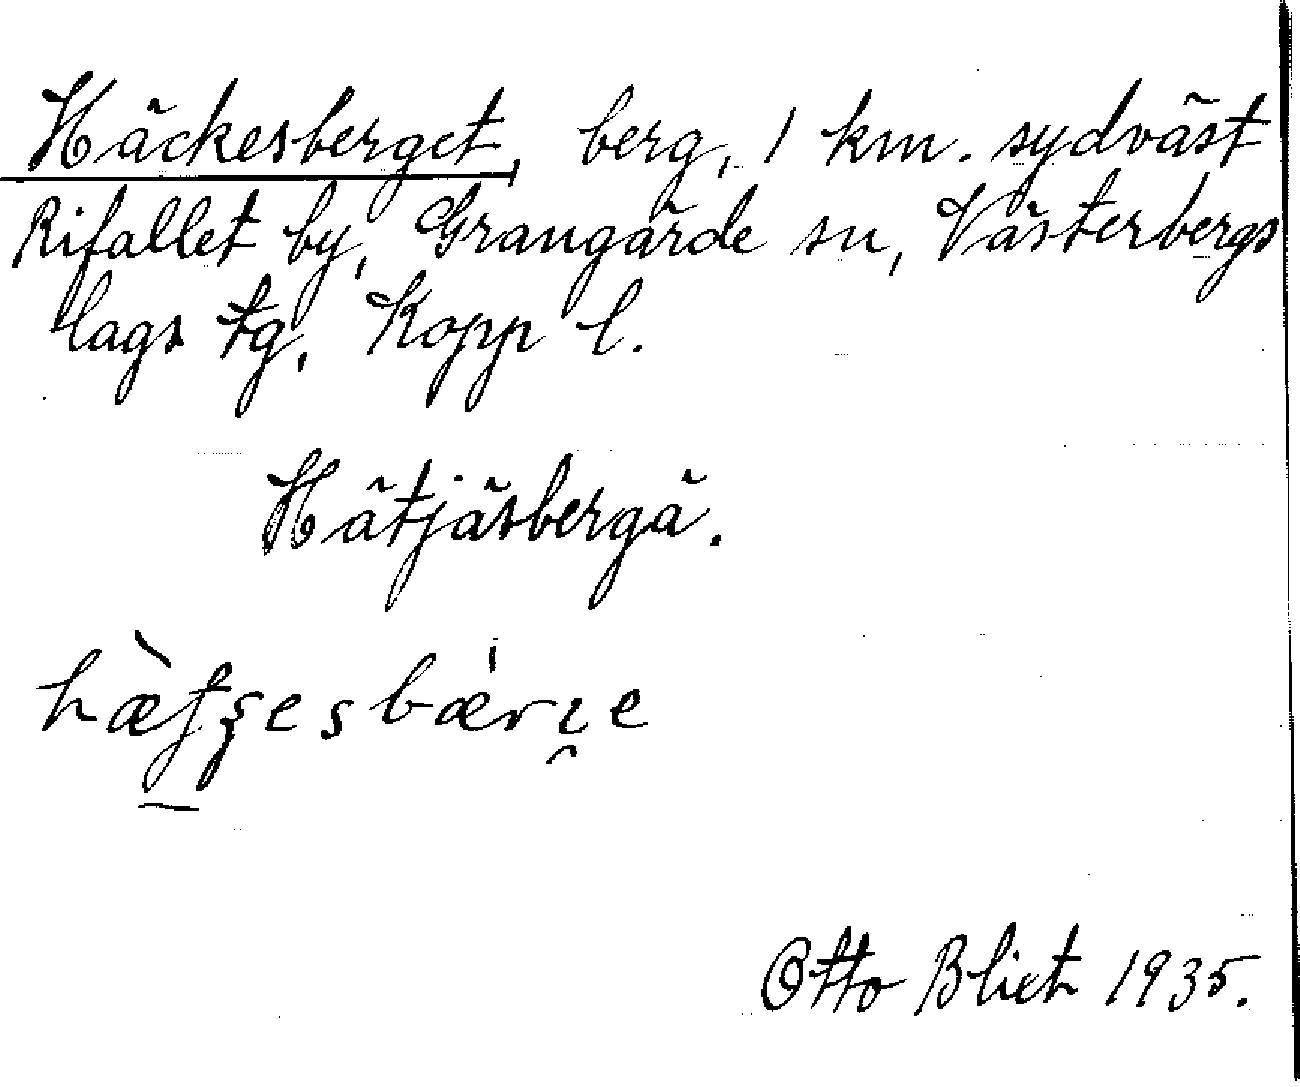 Häckesberget, berg, 1 km. sydväst
Rifallet by, Grangärde sn, Västerbergs
lags tg, Kopp l.
Hätjäsbergä.
Otto Blixt 1935.